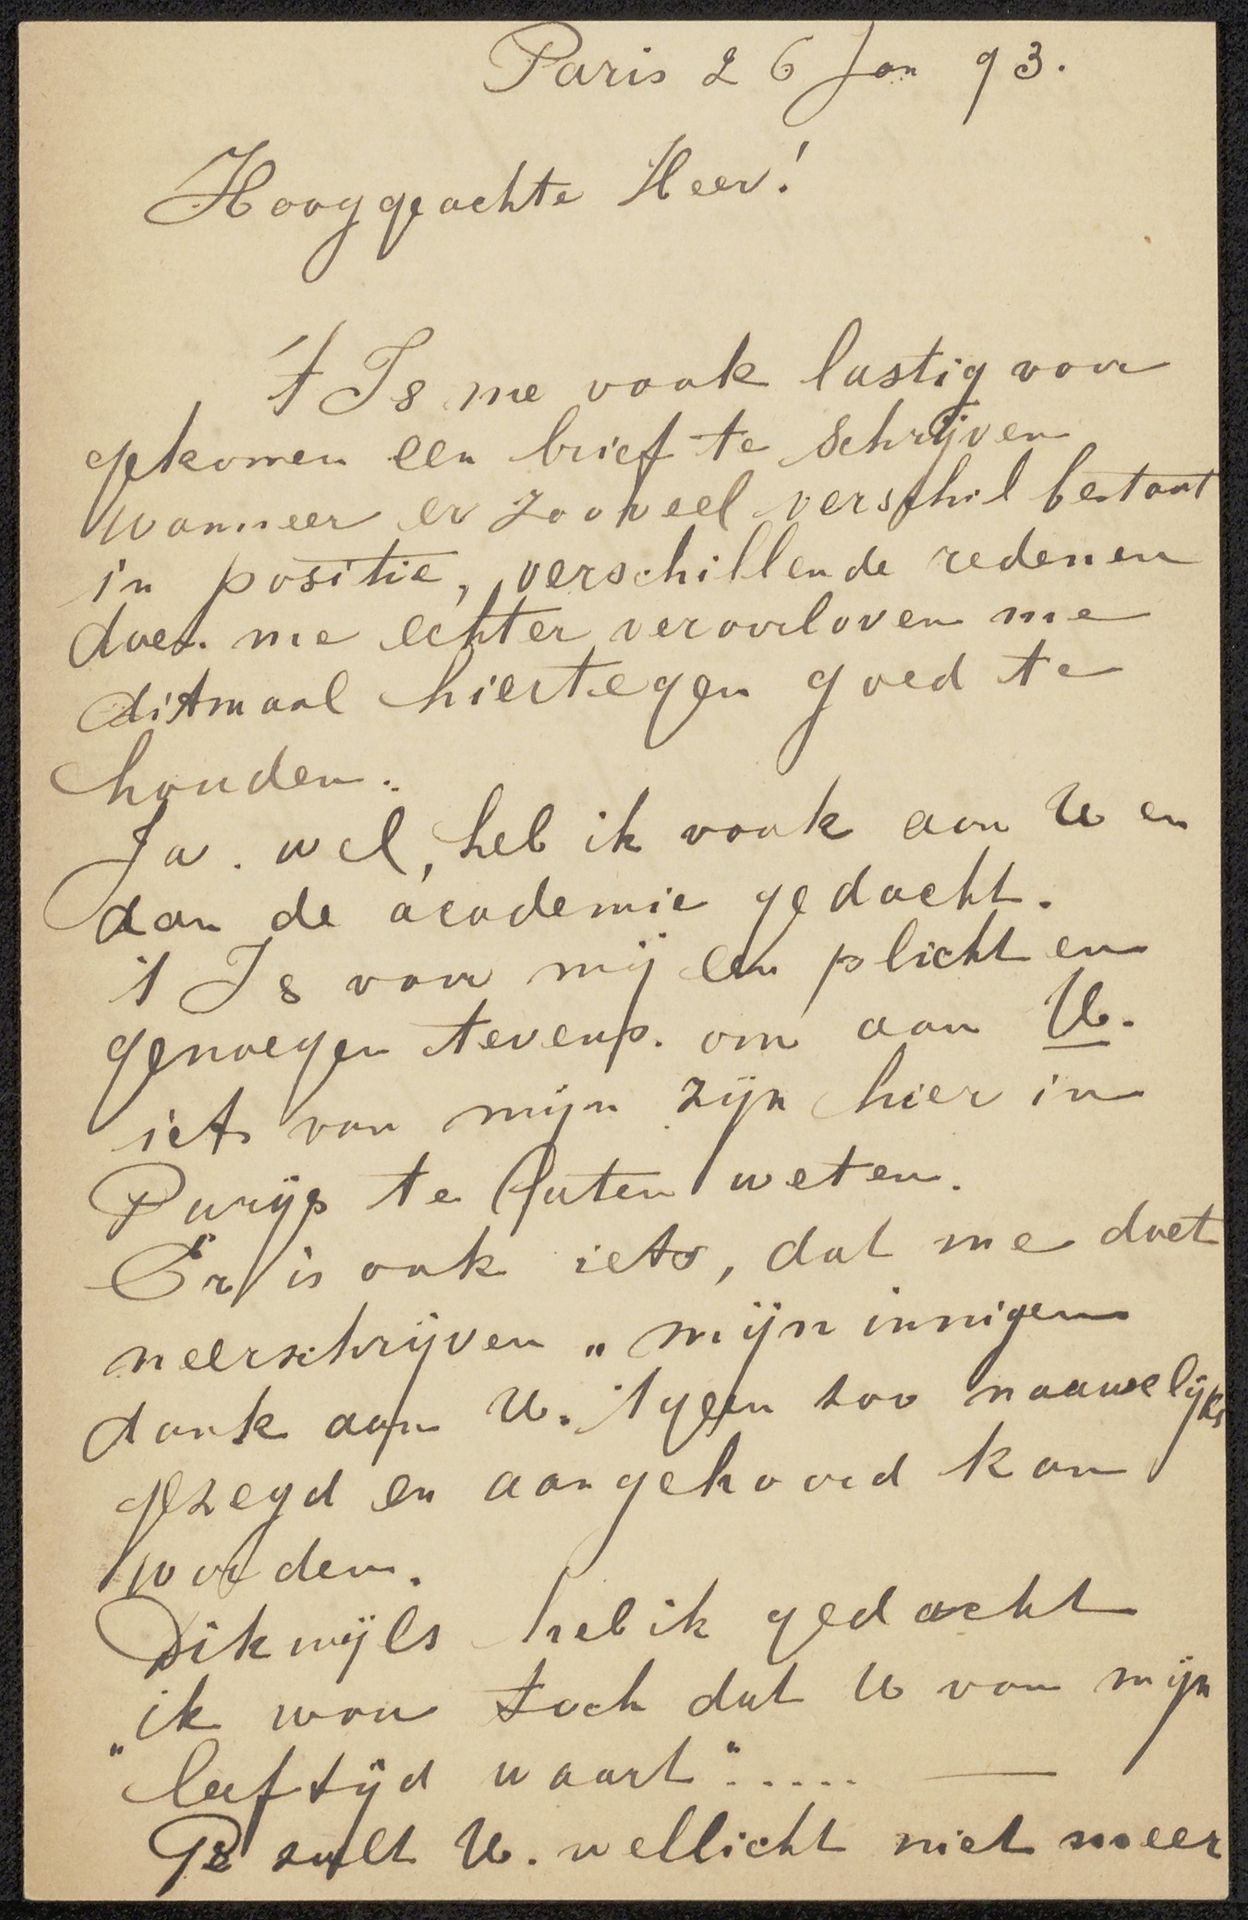 Paris 26 Jan 93.
Hooggeachte Heer!
't Is me vaak lastig voor
gekomen een brief te schrijven
wanneer er zooveel verschil bestaat
in positie, verschillende redenen
doen me echter veroorloven me
ditmaal hiertegen goed te
houden.
Ja. wel, heb ik vaak aan U en
aan de academie gedacht.
't Is voor mij een plicht en
genoegen tevens. om aan U.
iets van mijn zijn hier in
Parijs te laten weten.
Er is ook iets, dat me doet
neerschrijven „mijn innigen
dank aan U. 'tgeen zoo naauwelijks
gezegd en aangehoord kan
worden.
Dikwijls heb ik gedacht
„ik wou toch dat U van mijn
leeftijd waart"..... —
zult U. wellicht niet meer